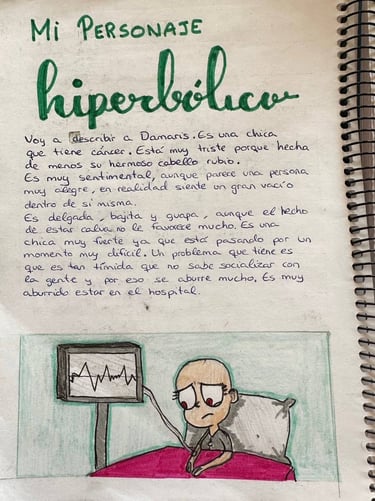 Mi Personaje
hiperbólico
Voy a describir a Damaris. Es una chica
que tiene cáncer. Está muy triste porque hecha
de menos su hermoso cabello rubio.
Es muy sentimental, aunque parece una persona
muy alegre, en realidad siente un gran vacío
dentro de si misma.
Es delgada, bajita y guapa, aunque el hecho
de estar calva no le favorece mucho. Es una
chica muy fuerte ya que está pasando por un
momento muy difícil. Un problema que tiene es
que es tan tímida que no sabe socializar con
la gente y por eso se aburre mucho. Es muy
aburrido estar en el hospital.